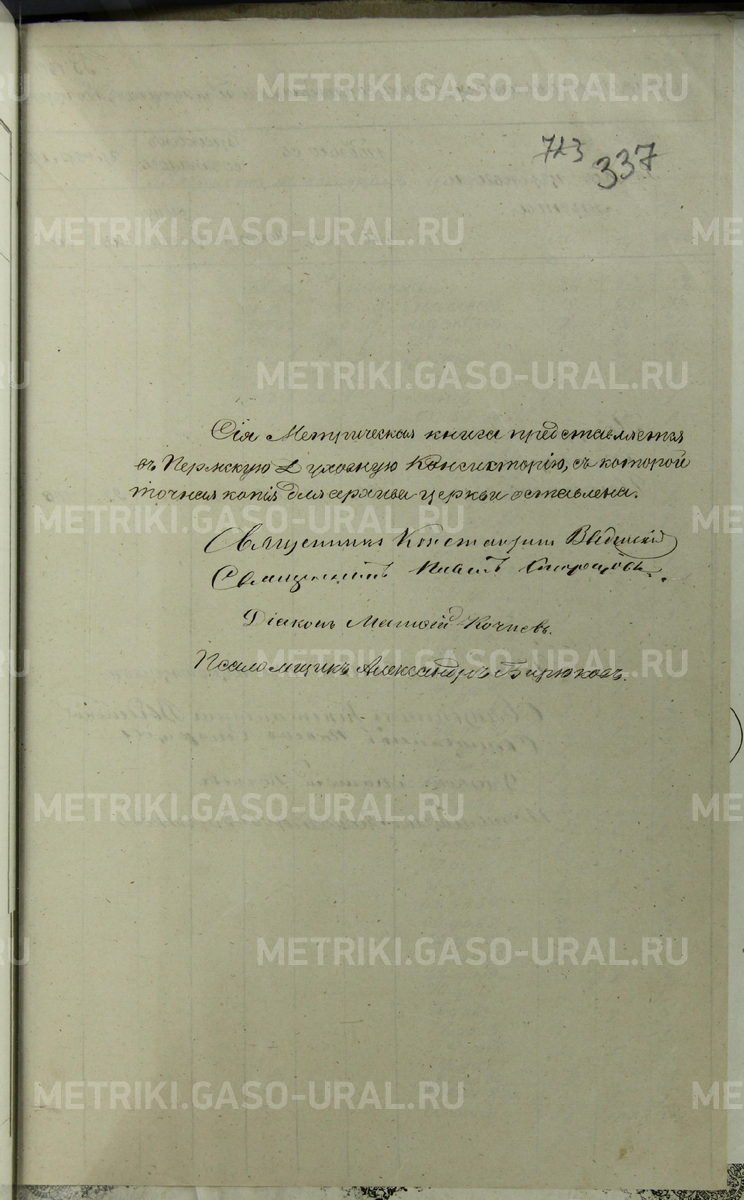 723 337
Сія Метрическая книга представляется
въ Пермскую Духовную Консисторію, съ которой
точная копія для архива церкви оставлена.
Священникъ Константинъ
Священникъ Павелъ
Діаконъ Матвій Кочневъ.
Псаломщикъ Александръ Бирюковъ.
METRIKI.GASO-URAL.RU
METRIKI.GASO-URAL.RU
METRIKI.GASO-URAL.RU
METRIKI.GASO-URAL.RU
METRIKI.GASO-URAL.RU
METRIKI.GASO-URAL.RU
METRIKI.GASO-URAL.RU
METRIKI.GASO-URAL.RU